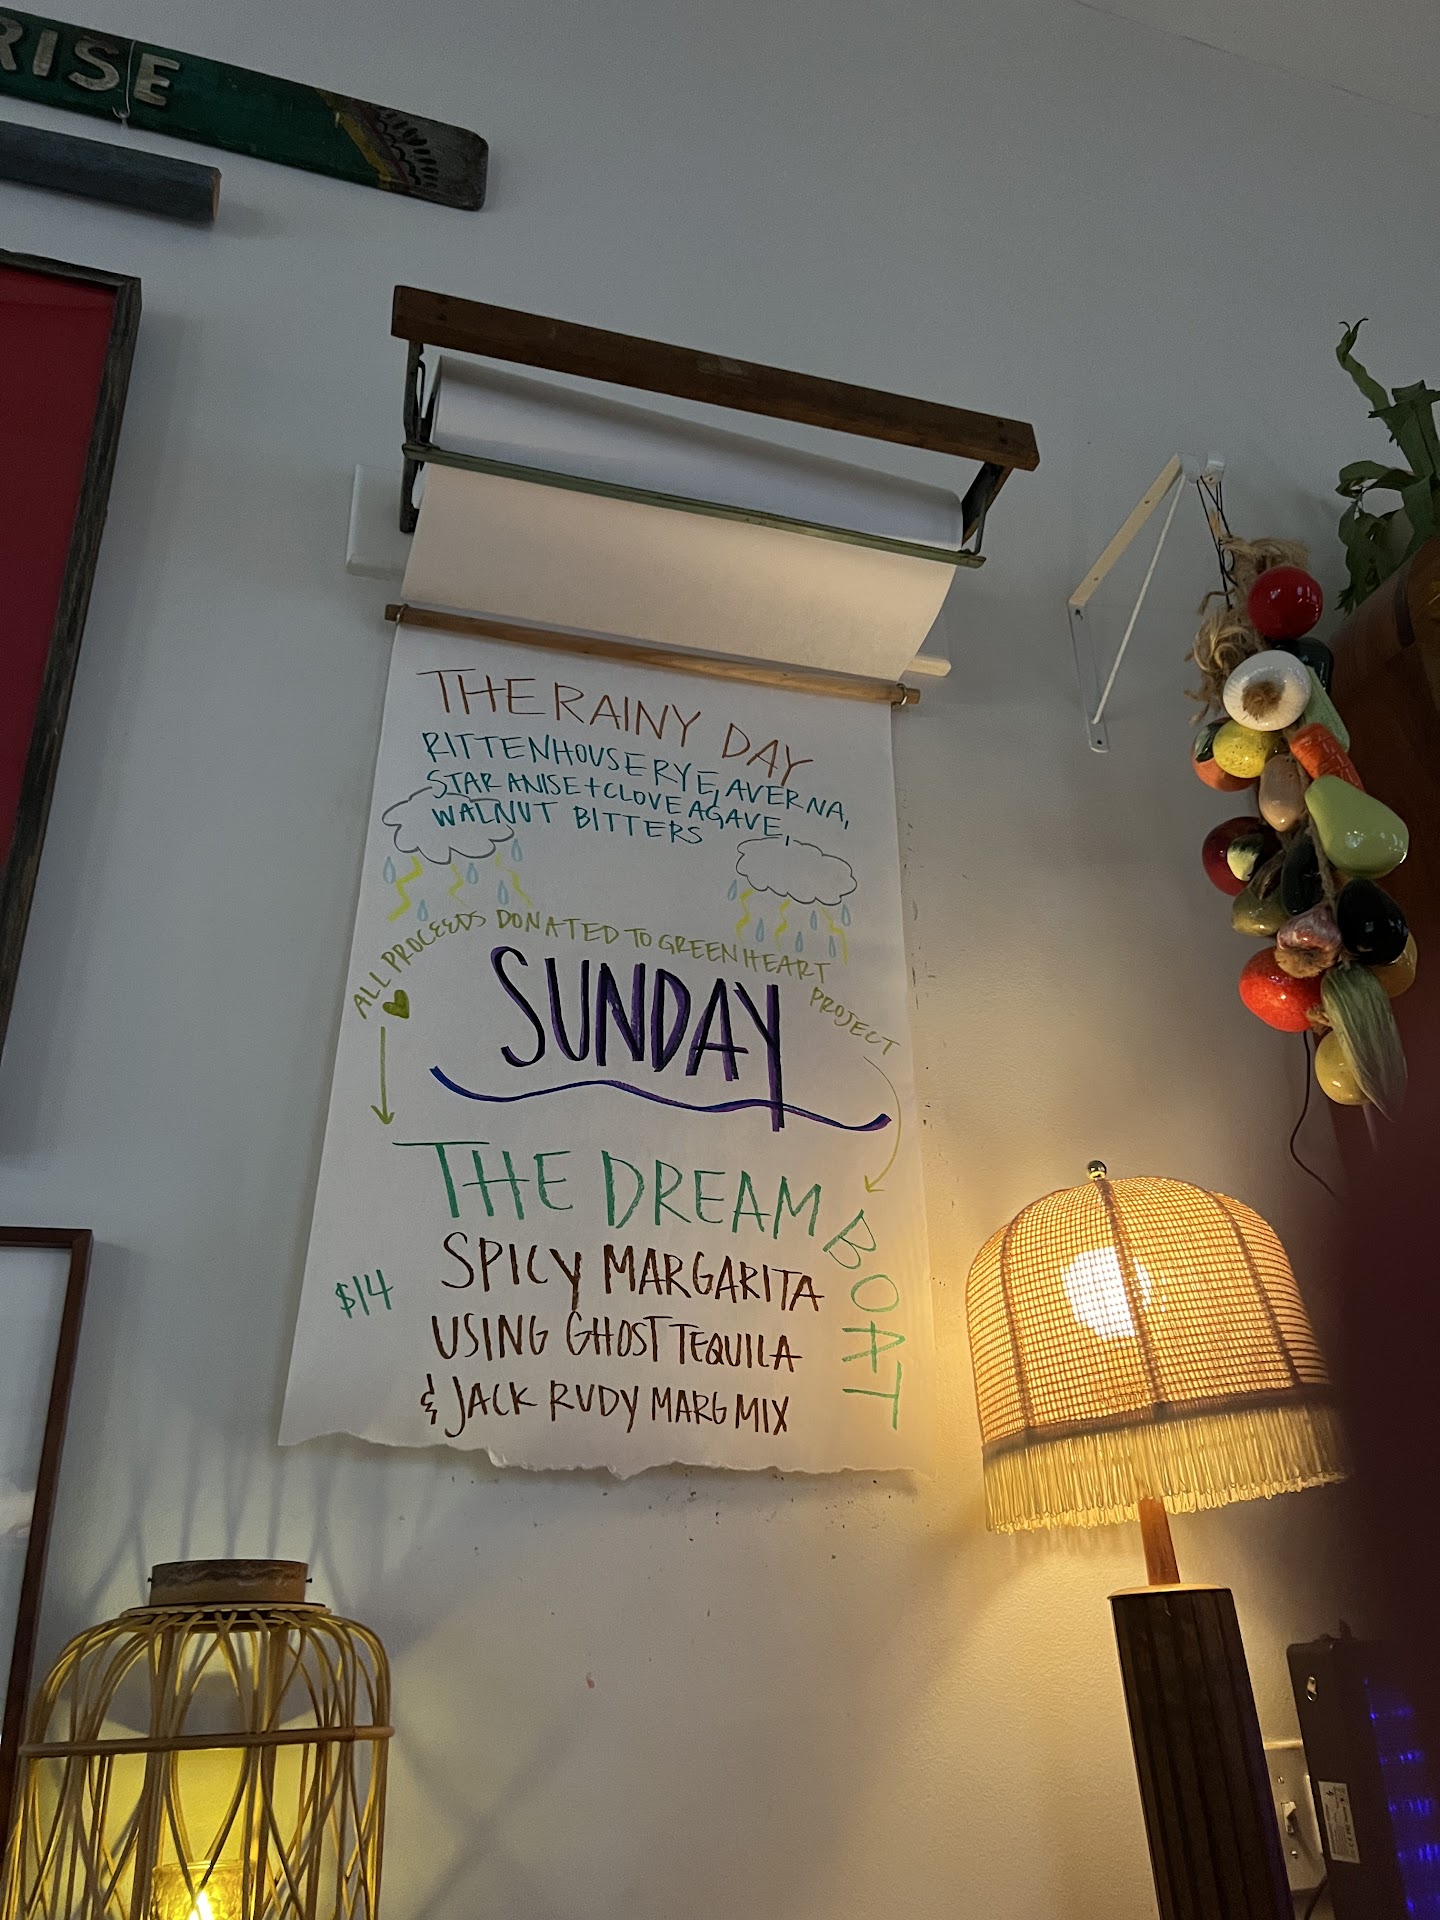 RISE
THE RAINY DAY
RITTENHOUSE RYE, AVERNA,
STAR ANISE + CLOVE AGAVE,
WALNUT BITTERS
ALL PROCEEDS DONATED TO GREEN HEART PROJECT
SUNDAY
THE DREAM BOAT
SPICY MARGARITA
$14
USING GHOST TEQUILA
& JACK RUDY MARG MIX